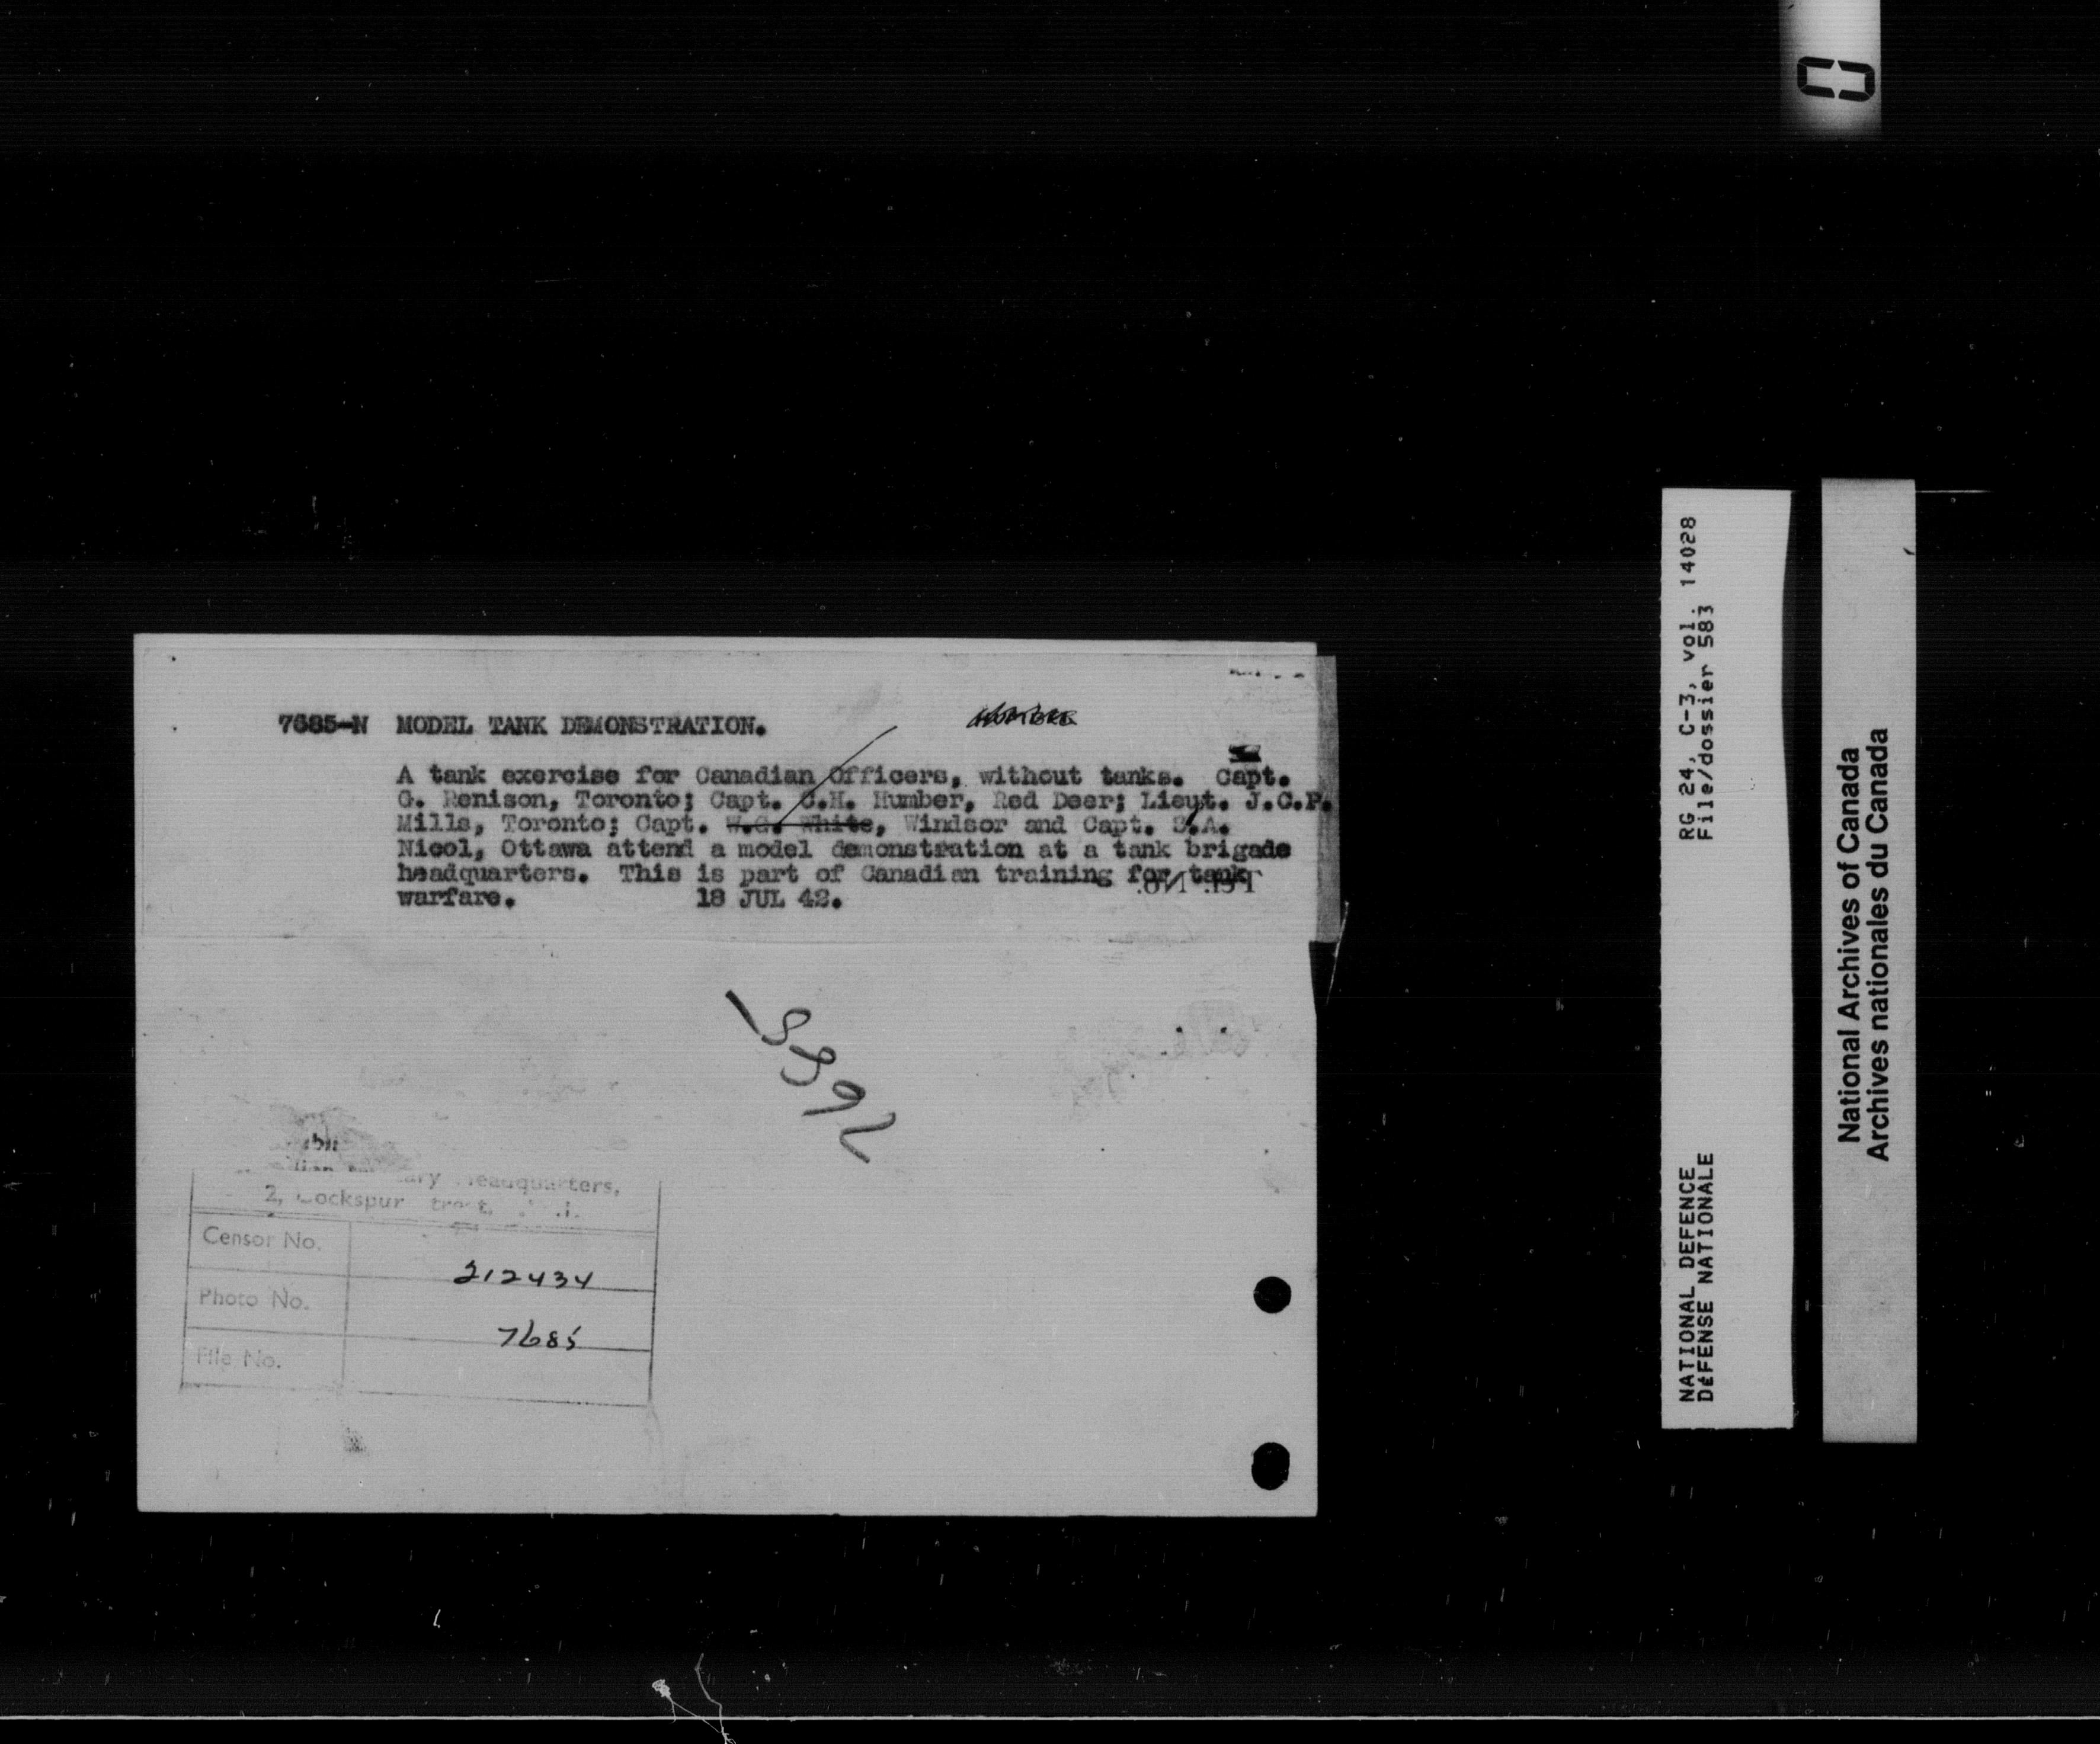 7685-N MODEL TANK DEMONSTRATION.
A tank exercise for Canadian Officers, without tanks. Capt.
G. Renison, Toronto; Capt. C.H. Humber, Red Deer; Lieut. J.C.P.
Mills, Toronto; Capt. W.G. White, Windsor and Capt. S.A.
Nicol, Ottawa attend a model demonstration at a tank brigade
headquarters. This is part of Canadian training for tank
warfare. 18 JUL 42.
Headquarters,
2, Cockspur
Censor No. 212434
Photo No. 7685
File No.
RG 24, C-3, vol. 14028
File/dossier 583
NATIONAL DEFENCE
DÉFENSE NATIONALE
National Archives of Canada
Archives nationales du Canada